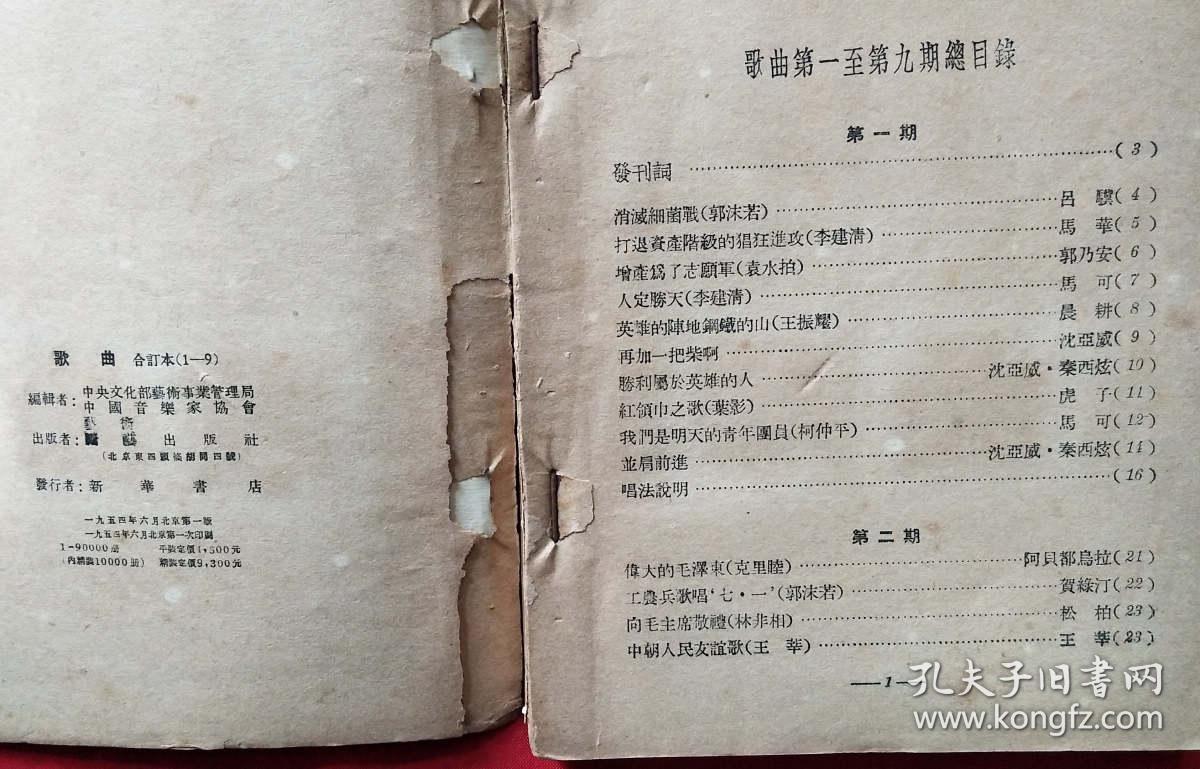 歌曲 合訂本(1—9)
編輯者：中央文化部藝術事業管理局
中國音樂家協會
藝術
出版者：出版社
(北京東四頭條胡同四號)
發行者：新華書店
一九五四年六月北京第一版
一九五四年六月北京第一次印刷
1-90000册 平裝定價4,500元
(內精裝10000册) 精裝定價9,300元
歌曲第一至第九期總目錄
第一期
發刊詞……(3)
消滅細菌戰(郭沫若)……呂驥(4)
打退資產階級的猖狂進攻(李建清)……馬華(5)
增產爲了志願軍(袁水拍)……郭乃安(6)
人定勝天(李建清)……馬可(7)
英雄的陣地鋼鐵的山(王振耀)……晨耕(8)
再加一把柴啊……沈亞威(9)
勝利屬於英雄的人……沈亞威·秦西炫(10)
紅領巾之歌(葉影)……虎子(11)
我們是明天的青年團員(柯仲平)……馬可(12)
並肩前進……沈亞威·秦西炫(14)
唱法說明……(16)
第二期
偉大的毛澤東(克里睦)……阿貝都烏拉(21)
工農兵歌唱‘七·一’(郭沫若)……賀綠汀(22)
向毛主席敬禮(林非相)……松柏(23)
中朝人民友誼歌(王莘)……王莘(23)
—1—
孔夫子旧书网
www.kongfz.com